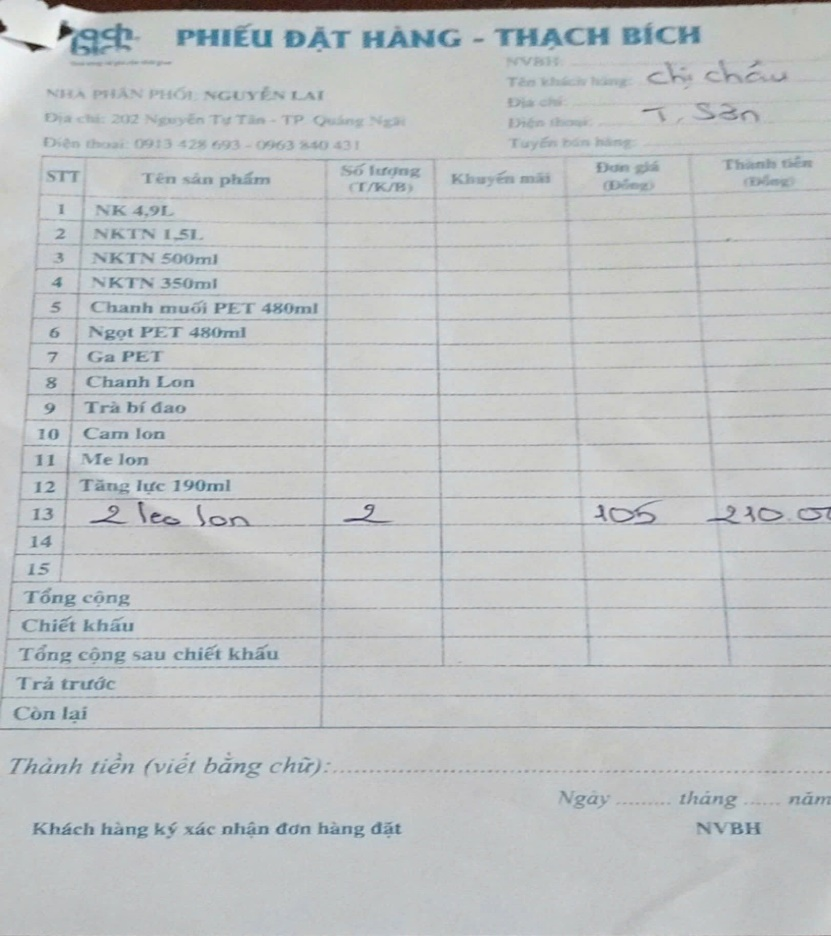 Thạch Bích
PHIẾU ĐẶT HÀNG - THẠCH BÍCH
NVBH:
NHÀ PHÂN PHỐI: NGUYỄN LAI
Tên khách hàng: chị châu
Địa chỉ: 202 Nguyễn Tự Tân - TP. Quảng Ngãi
Địa chỉ:
Điện thoại: T. Sơn
Điện thoại: 0913 428 693 - 0963 840 431
Tuyến bán hàng:
STT Tên sản phẩm Số lượng (T/K/B) Khuyến mãi Đơn giá (Đồng) Thành tiền (Đồng)
1 NK 4,9L
2 NKTN 1,5L
3 NKTN 500ml
4 NKTN 350ml
5 Chanh muối PET 480ml
6 Ngọt PET 480ml
7 Ga PET
8 Chanh Lon
9 Trà bí đao
10 Cam lon
11 Me lon
12 Tăng lực 190ml
13 2 leo lon 2 105 210.0
14
15
Tổng cộng
Chiết khấu
Tổng cộng sau chiết khấu
Trả trước
Còn lại
Thành tiền (viết bằng chữ):
Ngày ......... tháng ...... năm
Khách hàng ký xác nhận đơn hàng đặt NVBH